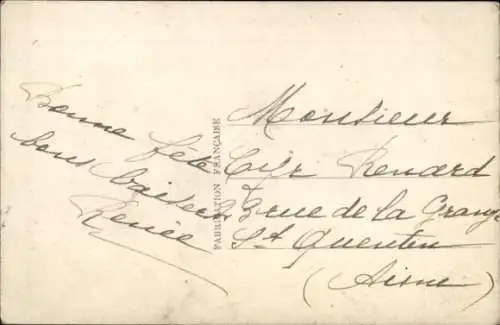 Bonne fête
bons baisers
Renée
FABRICATION FRANÇAISE
Monsieur
Renard
3 rue de la Grange
St Quentin
(Aisne)